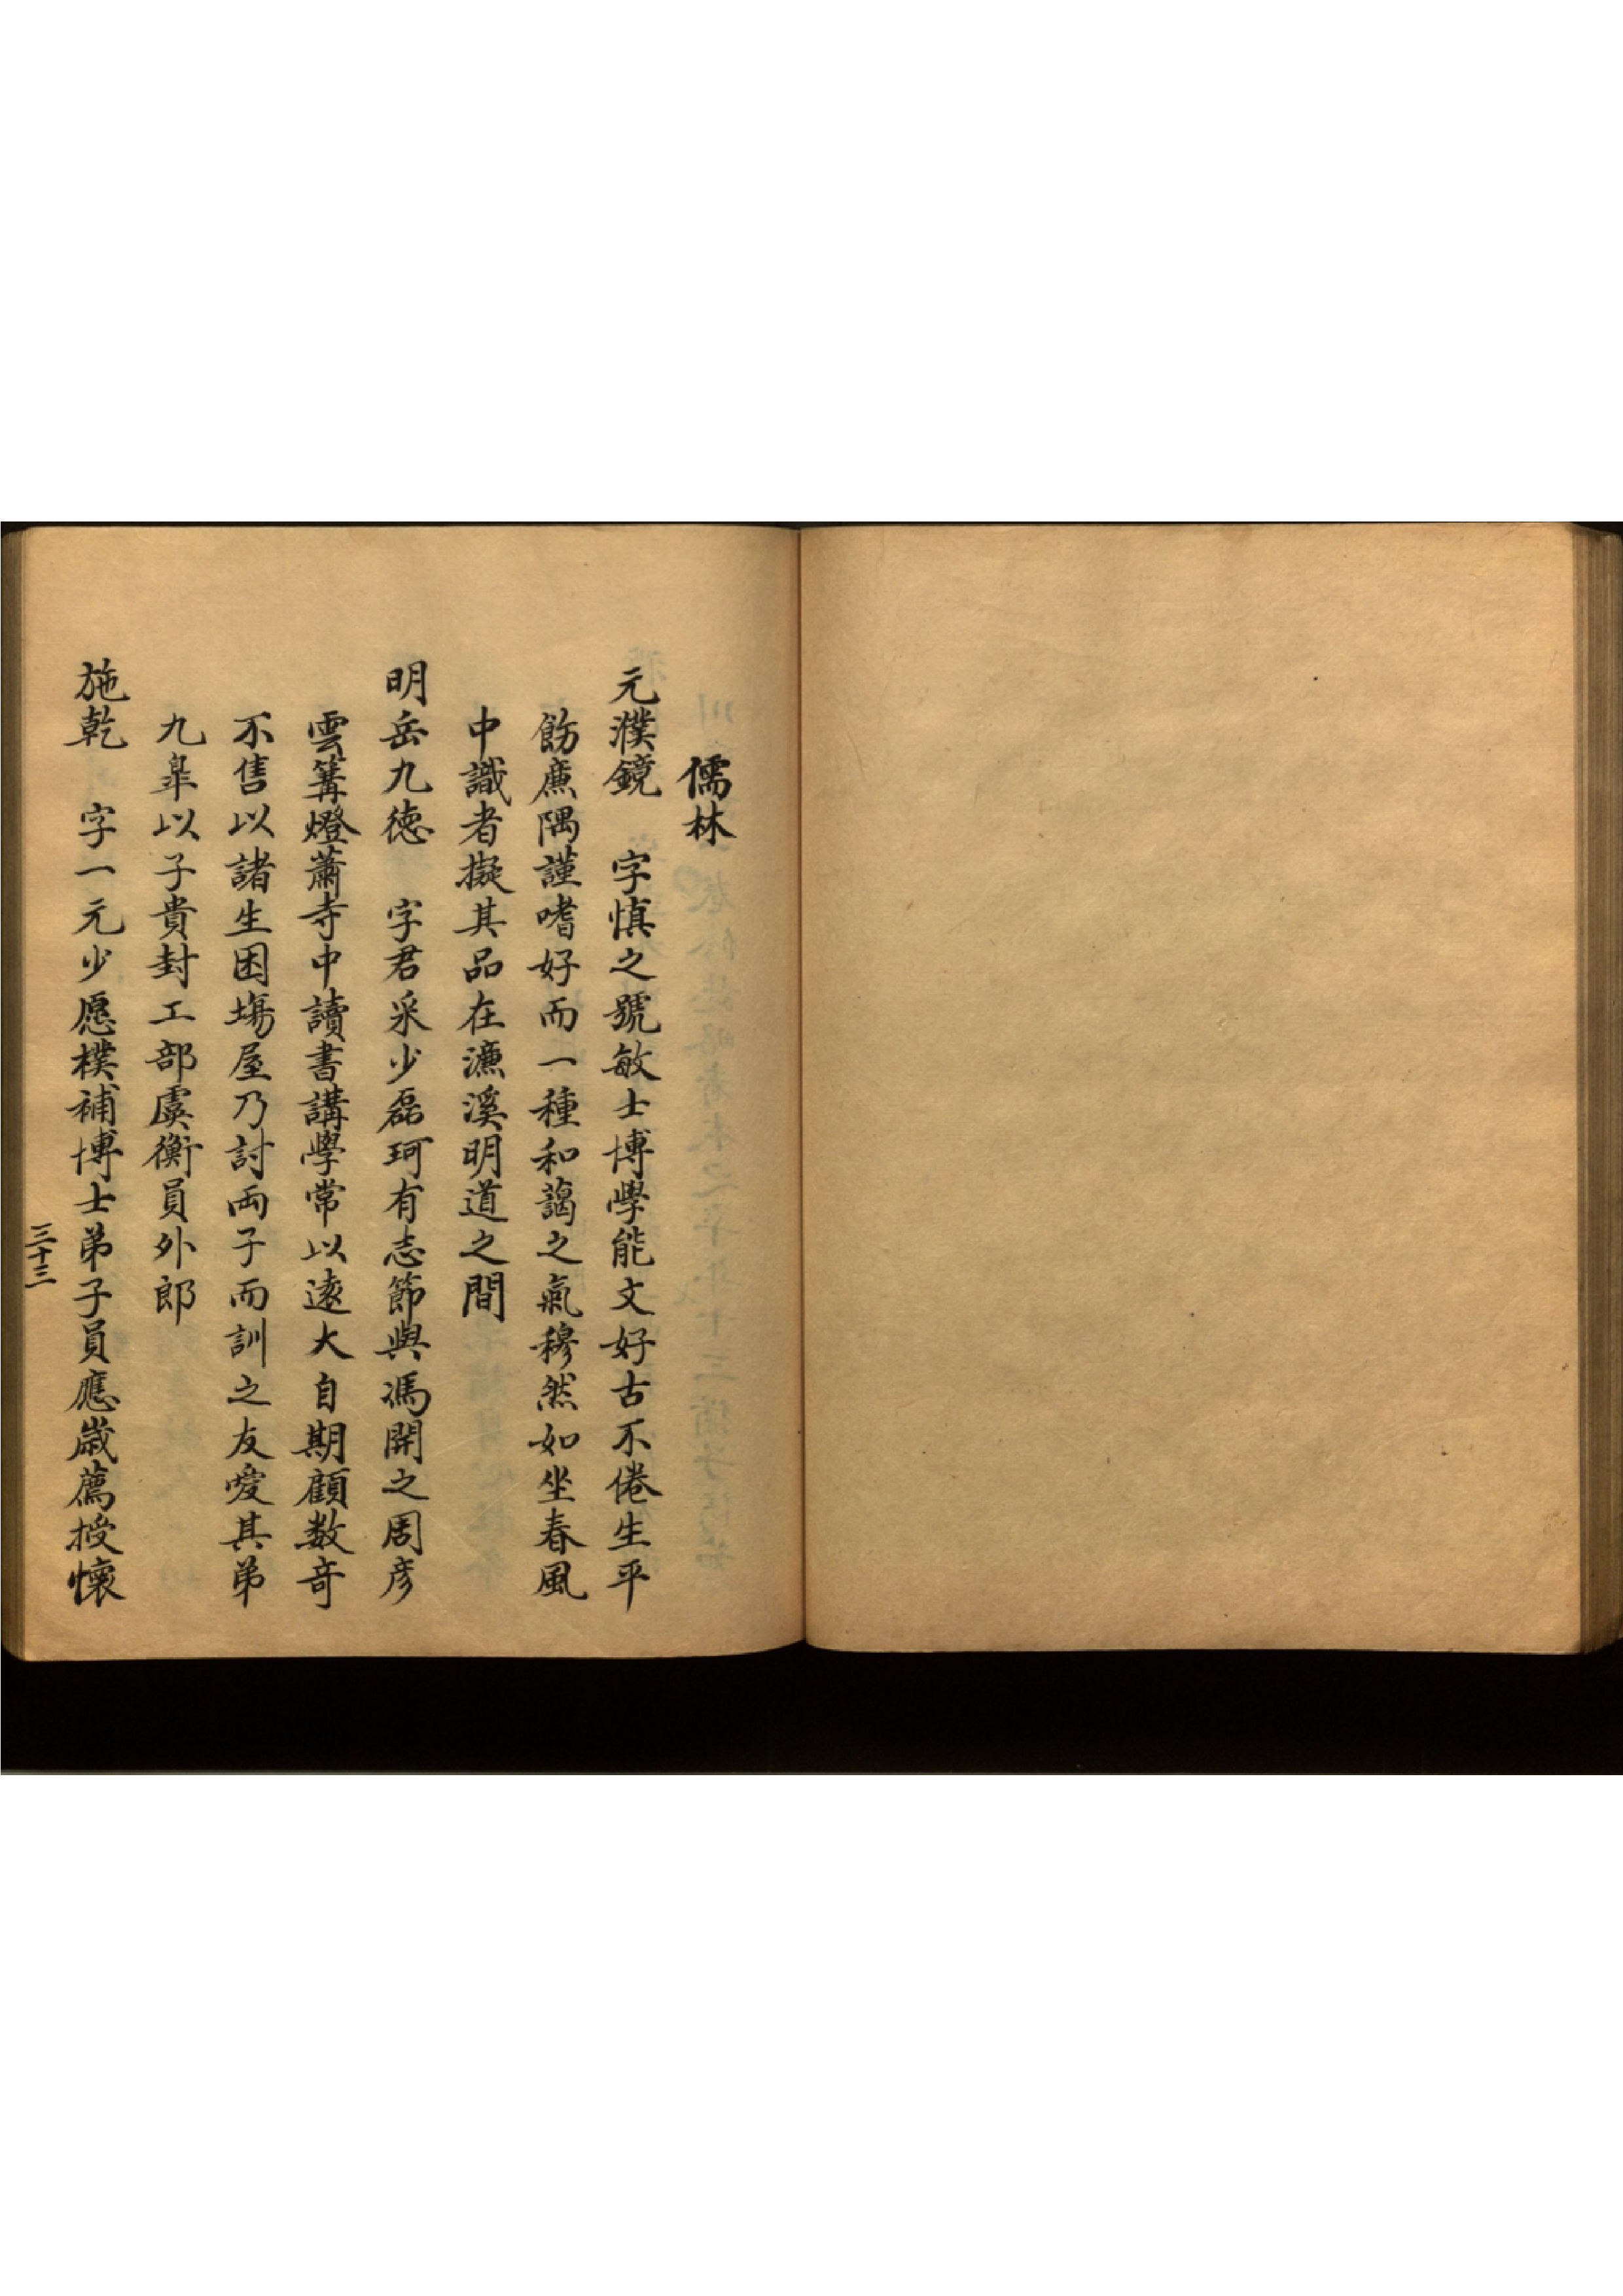 儒林
元濮鏡　字慎之號敏士博學能文好古不倦生平
飭廉隅謹嗜好而一種和藹之氣穆然如坐春風
中識者擬其品在濂溪明道之間
明岳九德　字君采少磊珂有志節與馮開之周彥
雲篝燈蕭寺中讀書講學常以遠大自期顧数奇
不售以諸生困塲屋乃討両子而訓之友愛其弟
九臯以子貴封工部虞衡員外郎
施乾　字一元少愿樸補博士弟子員應歲薦授懷
三十三